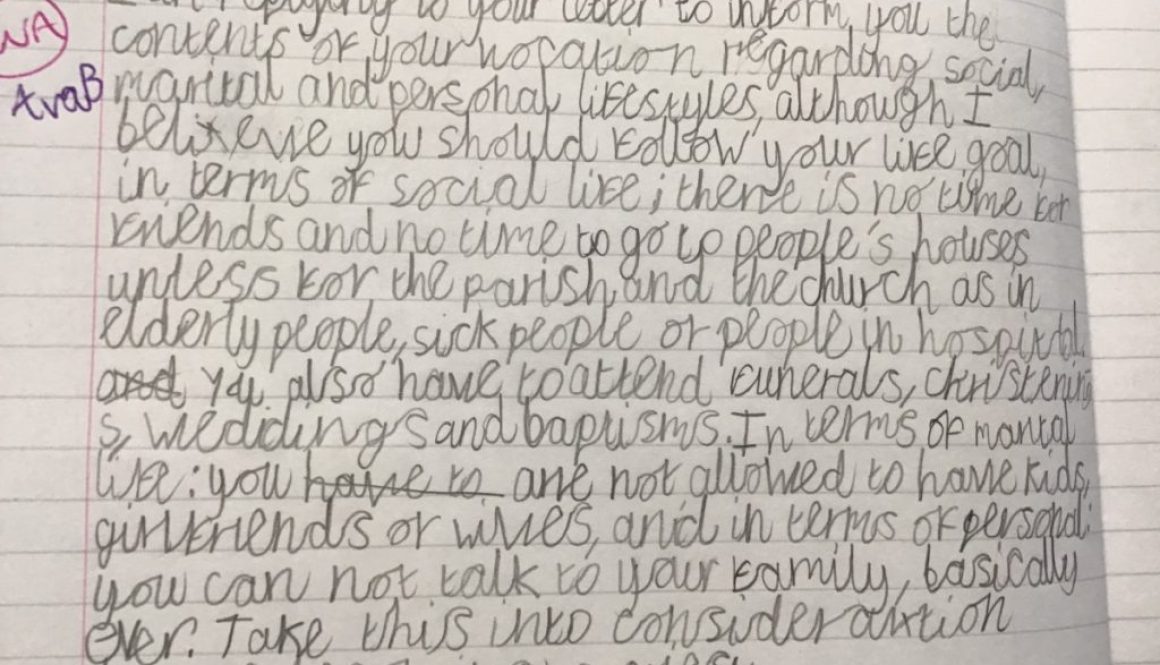 to your letter to inform you the
WA contents of your vocation regarding social,
AvaB marital and personal lifestyles, although I
believe you should follow your life goal,
in terms of social life; there is no time for
friends and no time to go to people's houses
unless for the parish, and the church as in
elderly people, sick people or people in hospital
and You also have to attend funerals, christening
s, weddings and baptisms. In terms of marital
life: you have to are not allowed to have kids,
girlfriends or wives, and in terms of personal:
you can not talk to your family, basically
ever. Take this into consideration